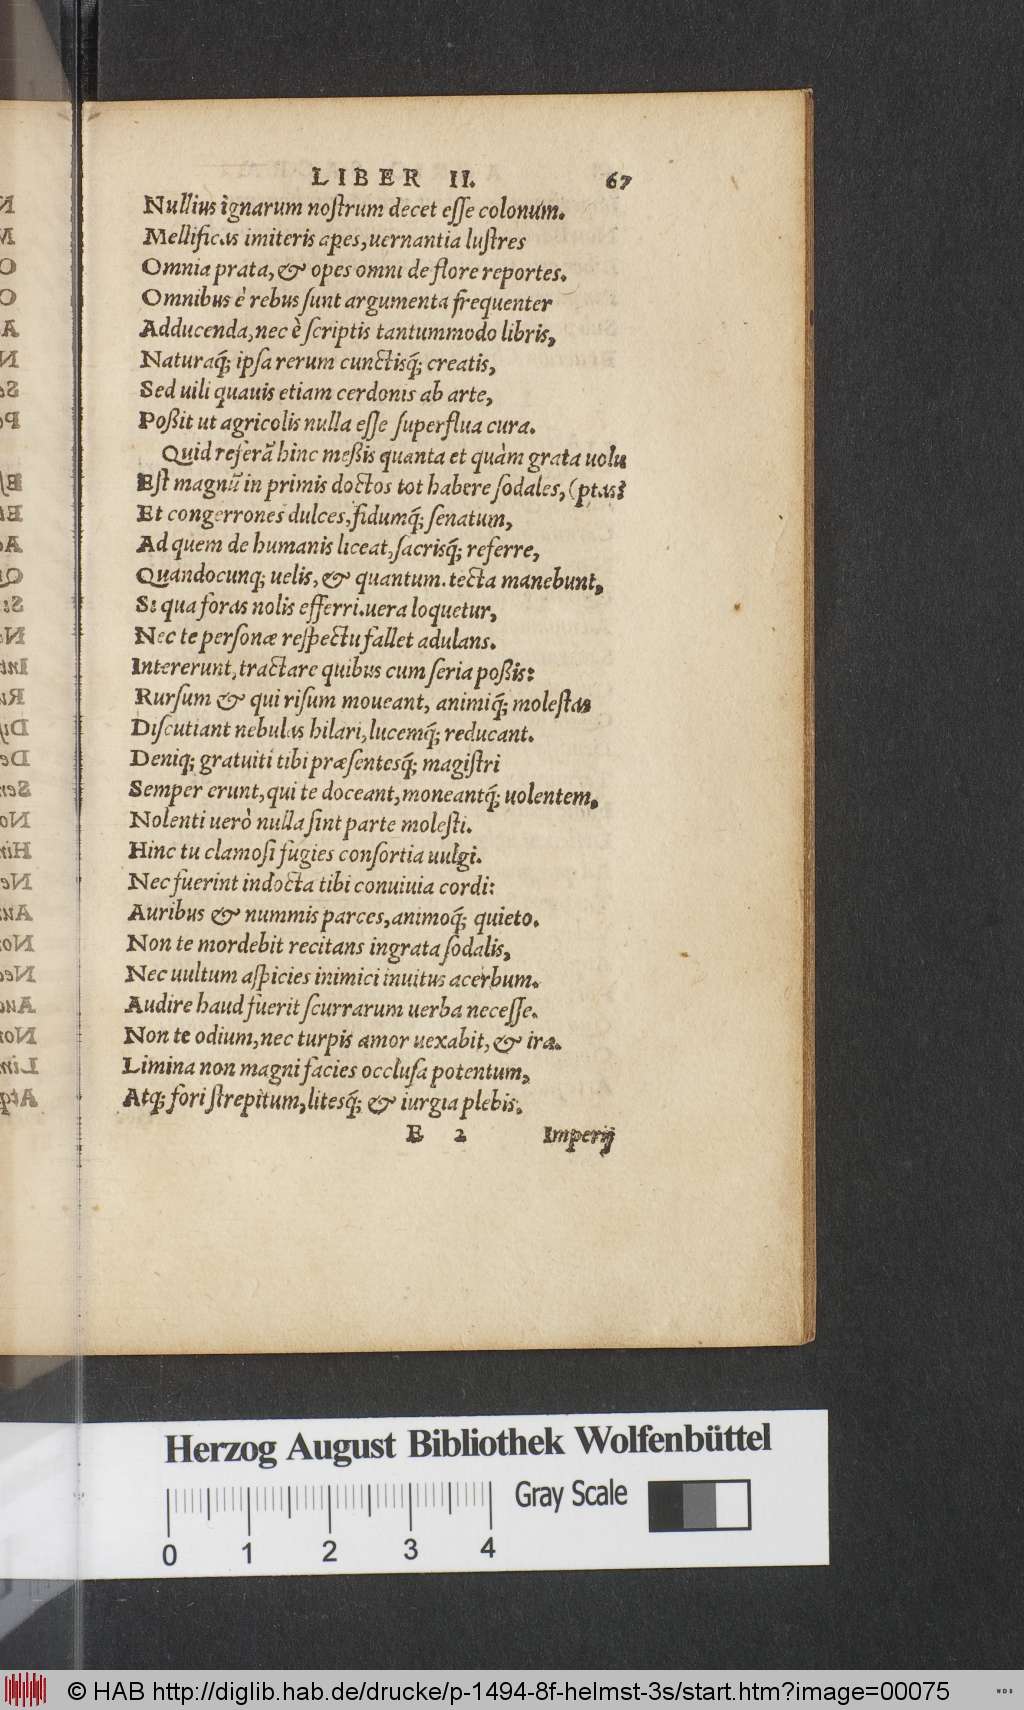 LIBER II. 67
Nullius ignarum noſtrum decet eſſe colonum.
Mellificas imiteris apes, uernantia luſtres
Omnia prata, & opes omni de flore reportes.
Omnibus è rebus ſunt argumenta frequenter
Adducenda, nec è ſcriptis tantummodo libris,
Naturaq́; ipſa rerum cunctisq́; creatis,
Sed uili quauis etiam cerdonis ab arte,
Poßit ut agricolis nulla eſſe ſuperflua cura.
Quid referā hinc meßis quanta et quàm grata uolu
Eſt magnū in primis doctos tot habere ſodales, (ptas?
Et congerrones dulces, fidumq́; ſenatum,
Ad quem de humanis liceat, ſacrisq́; referre,
Quandocunq; uelis, & quantum. tecta manebunt,
Si qua foras nolis efferri. uera loquetur,
Nec te perſonæ reſpectu fallet adulans.
Intererunt, tractare quibus cum ſeria poßis:
Rurſum & qui riſum moueant, animiq́; moleſtas
Diſcutiant nebulas hilari, lucemq́; reducant.
Deniq; gratuiti tibi præſentesq́; magiſtri
Semper erunt, qui te doceant, moneantq́; uolentem,
Nolenti uerò nulla ſint parte moleſti.
Hinc tu clamoſi fugies conſortia uulgi.
Nec fuerint indocta tibi conuiuia cordi:
Auribus & nummis parces, animoq́; quieto.
Non te mordebit recitans ingrata ſodalis,
Nec uultum aſpicies inimici inuitus acerbum.
Audire haud fuerit ſcurrarum uerba neceſſe.
Non te odium, nec turpis amor uexabit, & ira.
Limina non magni facies occluſa potentum,
Atq; fori ſtrepitum, litesq́; & iurgia plebis.
E 2 Imperij
Herzog August Bibliothek Wolfenbüttel
0 1 2 3 4 Gray Scale
© HAB http://diglib.hab.de/drucke/p-1494-8f-helmst-3s/start.htm?image=00075